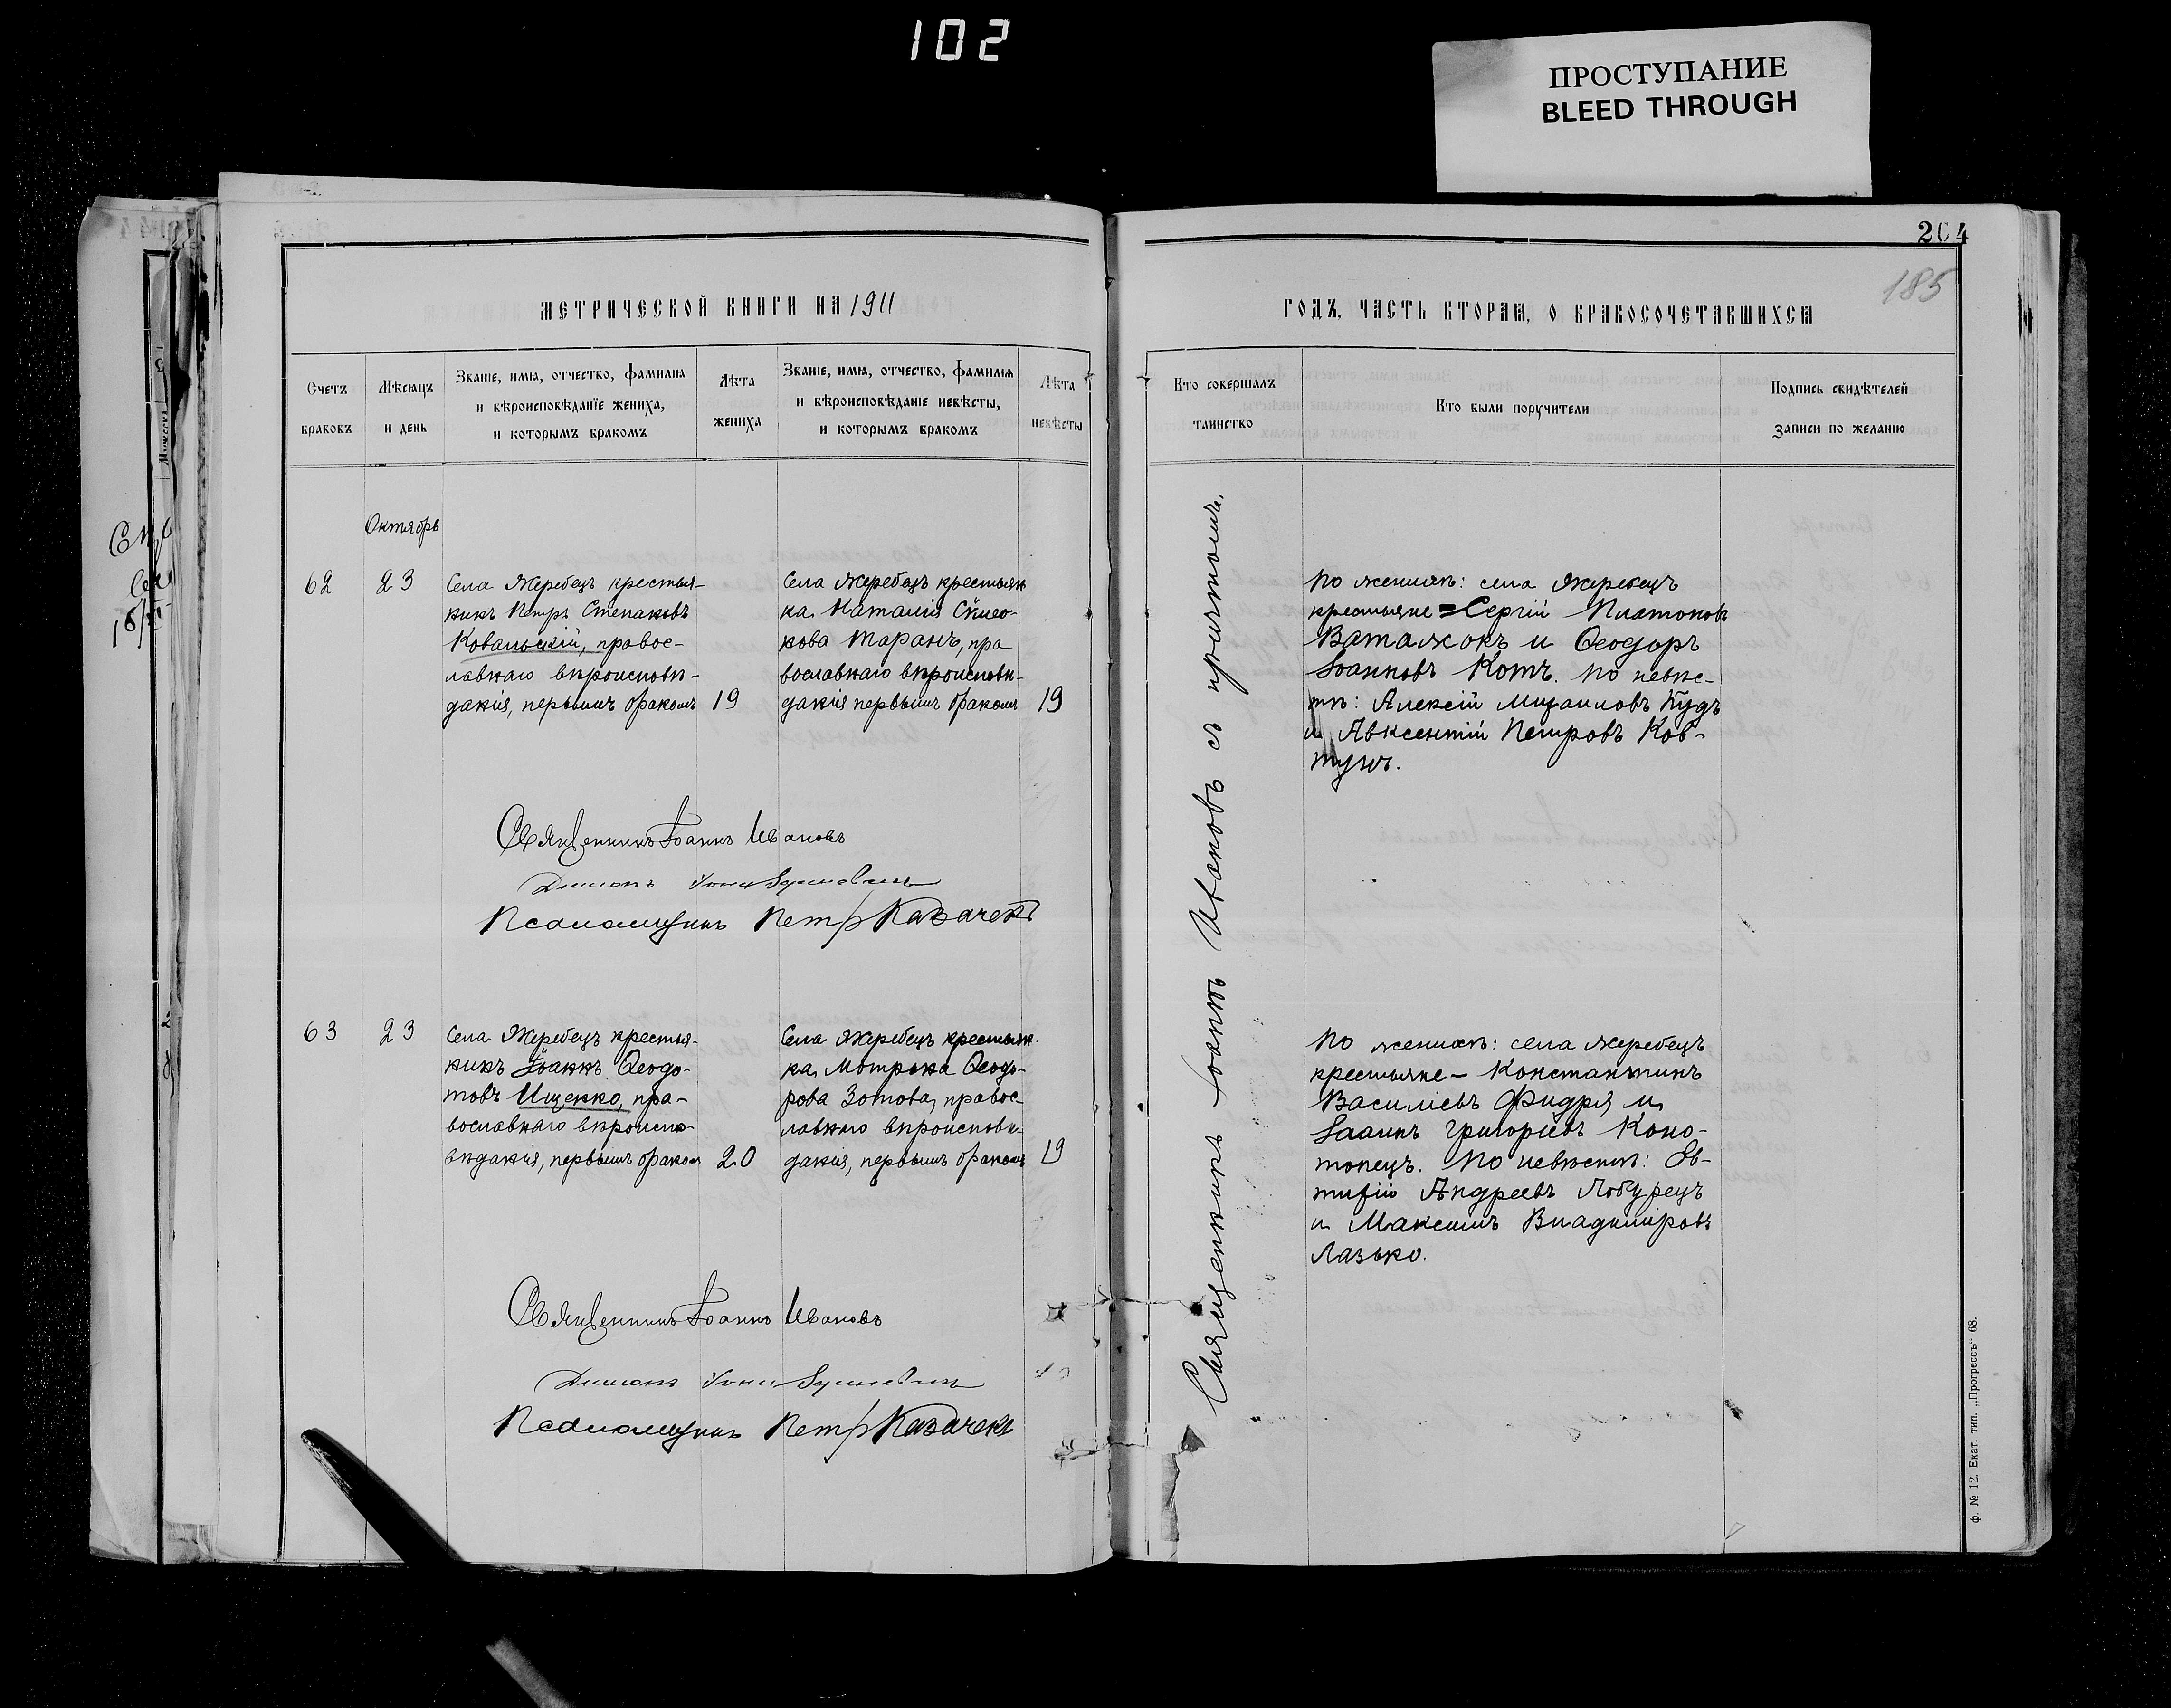 102
ПРОСТУПАНИЕ
BLEED THROUGH
204
185
МЕТРИЧЕСКОЙ КНИГИ НА 1911
ГОДЪ, ЧАСТЬ ВТОРАЯ, О БРАКОСОЧЕТАВШИХСЯ
Счетъ
браковъ
Мѣсяцъ
и день
Званіе, имя, отчество, фамилія
и вѣроисповѣданіе жениха,
и которымъ бракомъ
Лѣта
жениха
Званіе, имя, отчество, фамилія
и вѣроисповѣданіе невѣсты,
и которымъ бракомъ
Лѣта
невѣсты
Кто совершалъ
таинство
Кто были поручители
Подпись свидѣтелей
записи по желанію
Октябрь
62
23
Села Жеребецъ крестья-
нинъ Петръ Степановъ
Ковальскій, правос-
лавнаго вѣроисповѣ-
данія, первымъ бракомъ
19
Села Жеребецъ крестьян
ка Наталія Симео-
нова Таранъ, пра
вославнаго вѣроисповѣ-
данія первымъ бракомъ
19
Священникъ Іоаннъ Ивановъ съ причтомъ.
По женихѣ: села Жеребецъ
крестьяне = Сергій Платоновъ
Ватажокъ и Ѳеодоръ
Іоанновъ Котъ. По невѣс-
тѣ: Алексій Михаиловъ Кудъ
и Авксентій Петровъ Ков-
тунъ.
Священникъ Іоаннъ Ивановъ
Псаломщикъ Петръ Казачекъ
63
23
Села Жеребецъ крестья-
нинъ Іоаннъ Ѳеодо-
товъ Ищенко, пра-
вославнаго вѣроиспо-
вѣданія, первымъ браком
20
Села Жеребецъ крестьян-
ка Мотрона Ѳеодо-
рова Зотова, правос-
лавнаго вѣроисповѣ-
данія, первымъ бракомъ
19
По женихѣ: села Жеребецъ
крестьяне – Константинъ
Василіевъ Фидря и
Іоаннъ Григоріевъ Коно-
топецъ. По невѣстѣ: Ев-
тифій Андреевъ Лобурецъ
и Максимъ Владиміровъ
Лазько.
Священникъ Іоаннъ Ивановъ
Псаломщикъ Петръ Казачекъ
ф. № 12. Екат. тип. „Прогрессъ“ 68.